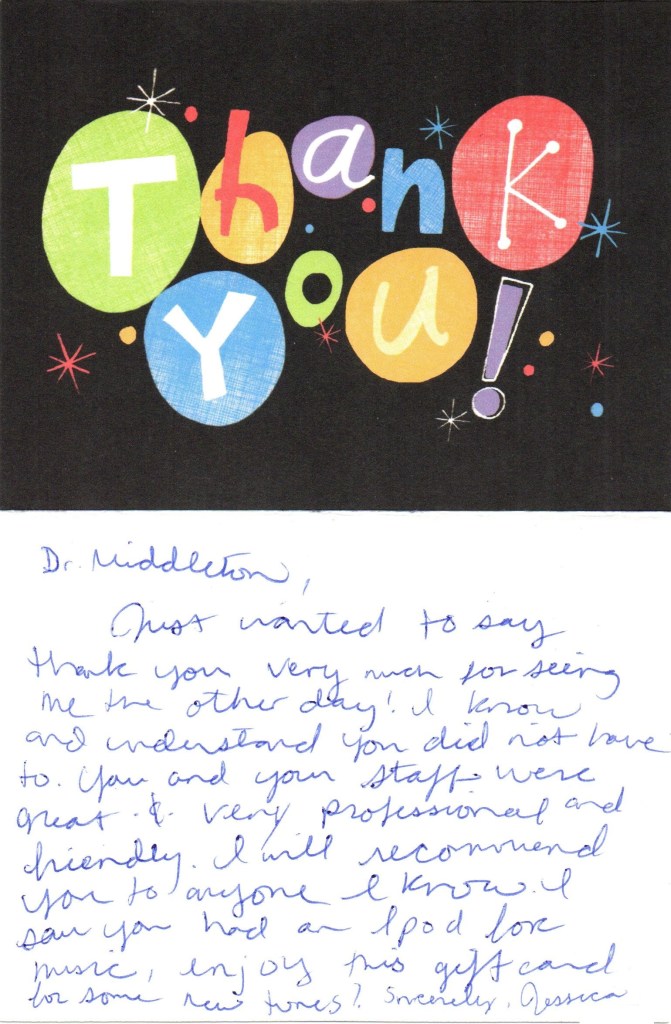 Thank
You!
Dr. Middleton,
Just wanted to say
thank you very much for seeing
me the other day! I know
and understand you did not have
to. You and your staff were
great & very professional and
friendly. I will recommend
you to anyone I know. I
saw you had an Ipod for
music, enjoy this gift card
for some new tunes! Sincerely, Jessica